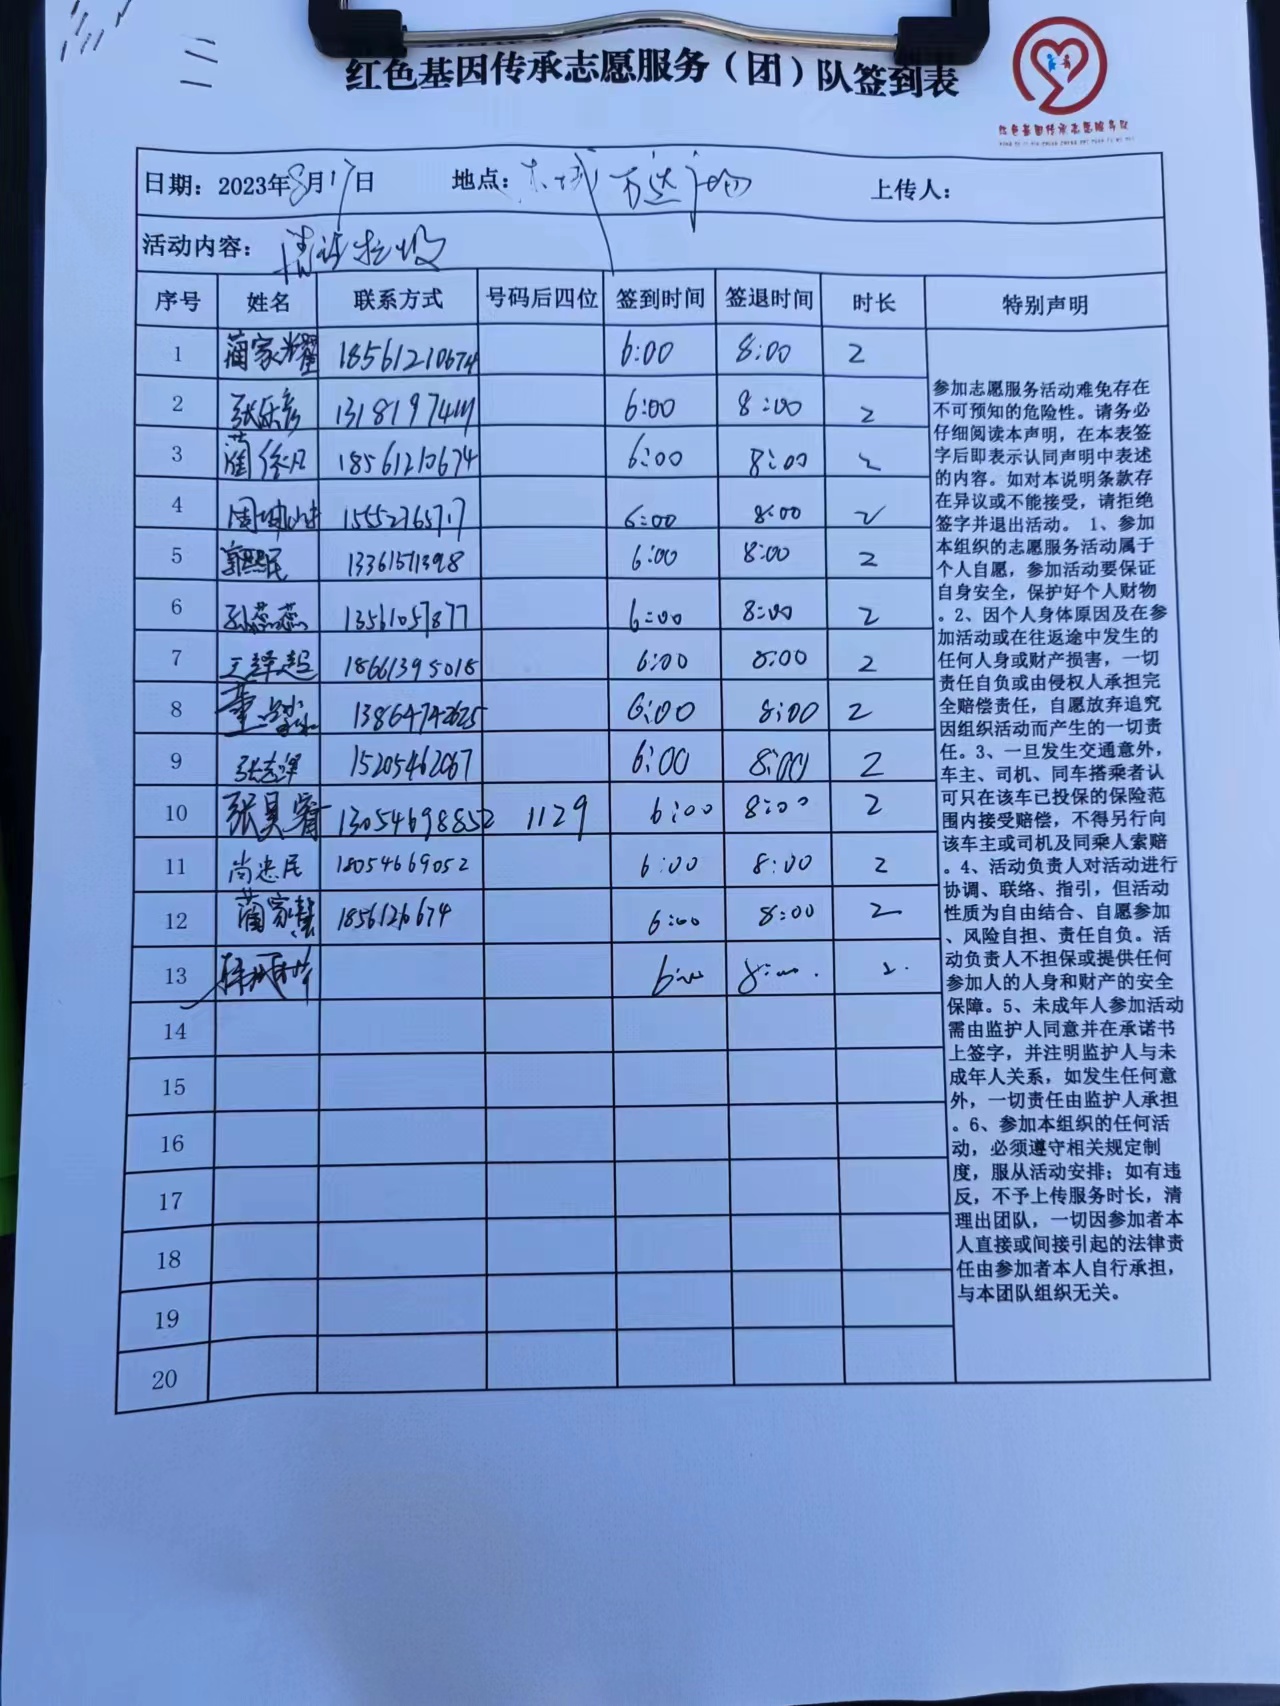 红色基因传承志愿服务（团）队签到表
红色基因传承志愿服务队
日期：2023年8月17日 地点：东城万达 上传人：
活动内容：清许垃圾
序号 姓名 联系方式 号码后四位 签到时间 签退时间 时长 特别声明
1 蔺家耀 18561210674 6:00 8:00 2
2 张乐彦 6:00 8:00 2
3 18561210674 6:00 8:00 2
4 15552765717 6:00 8:00 2
5 郭熙民 13361571398 6:00 8:00 2
6 孙燕燕 13561057877 6:00 8:00 2
7 王译起 18661395018 6:00 8:00 2
8 13864742625 6:00 8:00 2
9 张志泽 15205462067 6:00 8:00 2
10 张昊睿 13054698852 1129 6:00 8:00 2
11 尚忠民 18054669052 6:00 8:00 2
12 蔺家慧 1856126674 6:00 8:00 2
13 6:00 8:00. 2.
14
15
16
17
18
19
20
参加志愿服务活动难免存在
不可预知的危险性。请务必
仔细阅读本声明，在本表签
字后即表示认同声明中表述
的内容。如对本说明条款存
在异议或不能接受，请拒绝
签字并退出活动。 1、参加
本组织的志愿服务活动属于
个人自愿，参加活动要保证
自身安全，保护好个人财物
。2、因个人身体原因及在参
加活动或在往返途中发生的
任何人身或财产损害，一切
责任自负或由侵权人承担完
全赔偿责任，自愿放弃追究
因组织活动而产生的一切责
任。3、一旦发生交通意外，
车主、司机、同车搭乘者认
可只在该车已投保的保险范
围内接受赔偿，不得另行向
该车主或司机及同乘人索赔
。4、活动负责人对活动进行
协调、联络、指引，但活动
性质为自由结合、自愿参加
、风险自担、责任自负。活
动负责人不担保或提供任何
参加人的人身和财产的安全
保障。5、未成年人参加活动
需由监护人同意并在承诺书
上签字，并注明监护人与未
成年人关系，如发生任何意
外，一切责任由监护人承担
。6、参加本组织的任何活
动，必须遵守相关规定制
度，服从活动安排；如有违
反，不予上传服务时长，清
理出团队，一切因参加者本
人直接或间接引起的法律责
任由参加者本人自行承担，
与本团队组织无关。